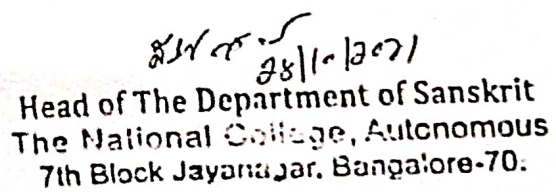 Head of The Department of Sanskrit
The National College, Autonomous
7th Block Jayanagar. Bangalore-70.